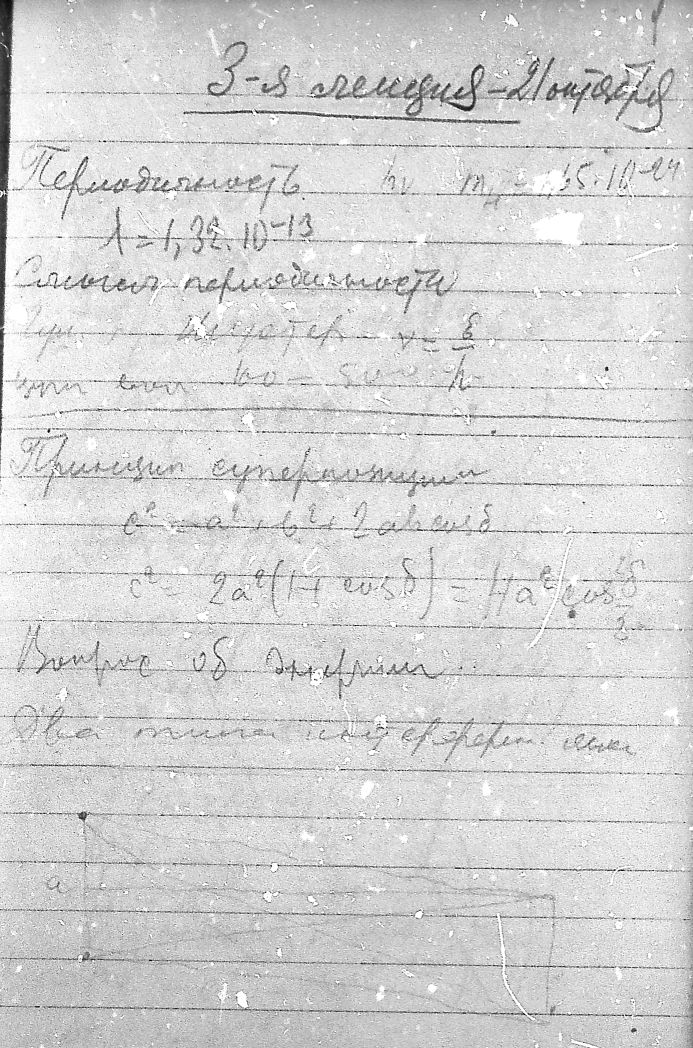 3-я лекция – 21 октября
Периодичность hν m_H = 1,65·10⁻²⁴
λ = 1,32·10⁻¹³
Смысл периодичности
ν = ε/h
при
Принцип суперпозиции
c² = a² + b² + 2ab cos δ
c² = 2a²(1 + cos δ) = 4a² cos² δ/2
Вопрос об энергии
Два типа интерферен.
a